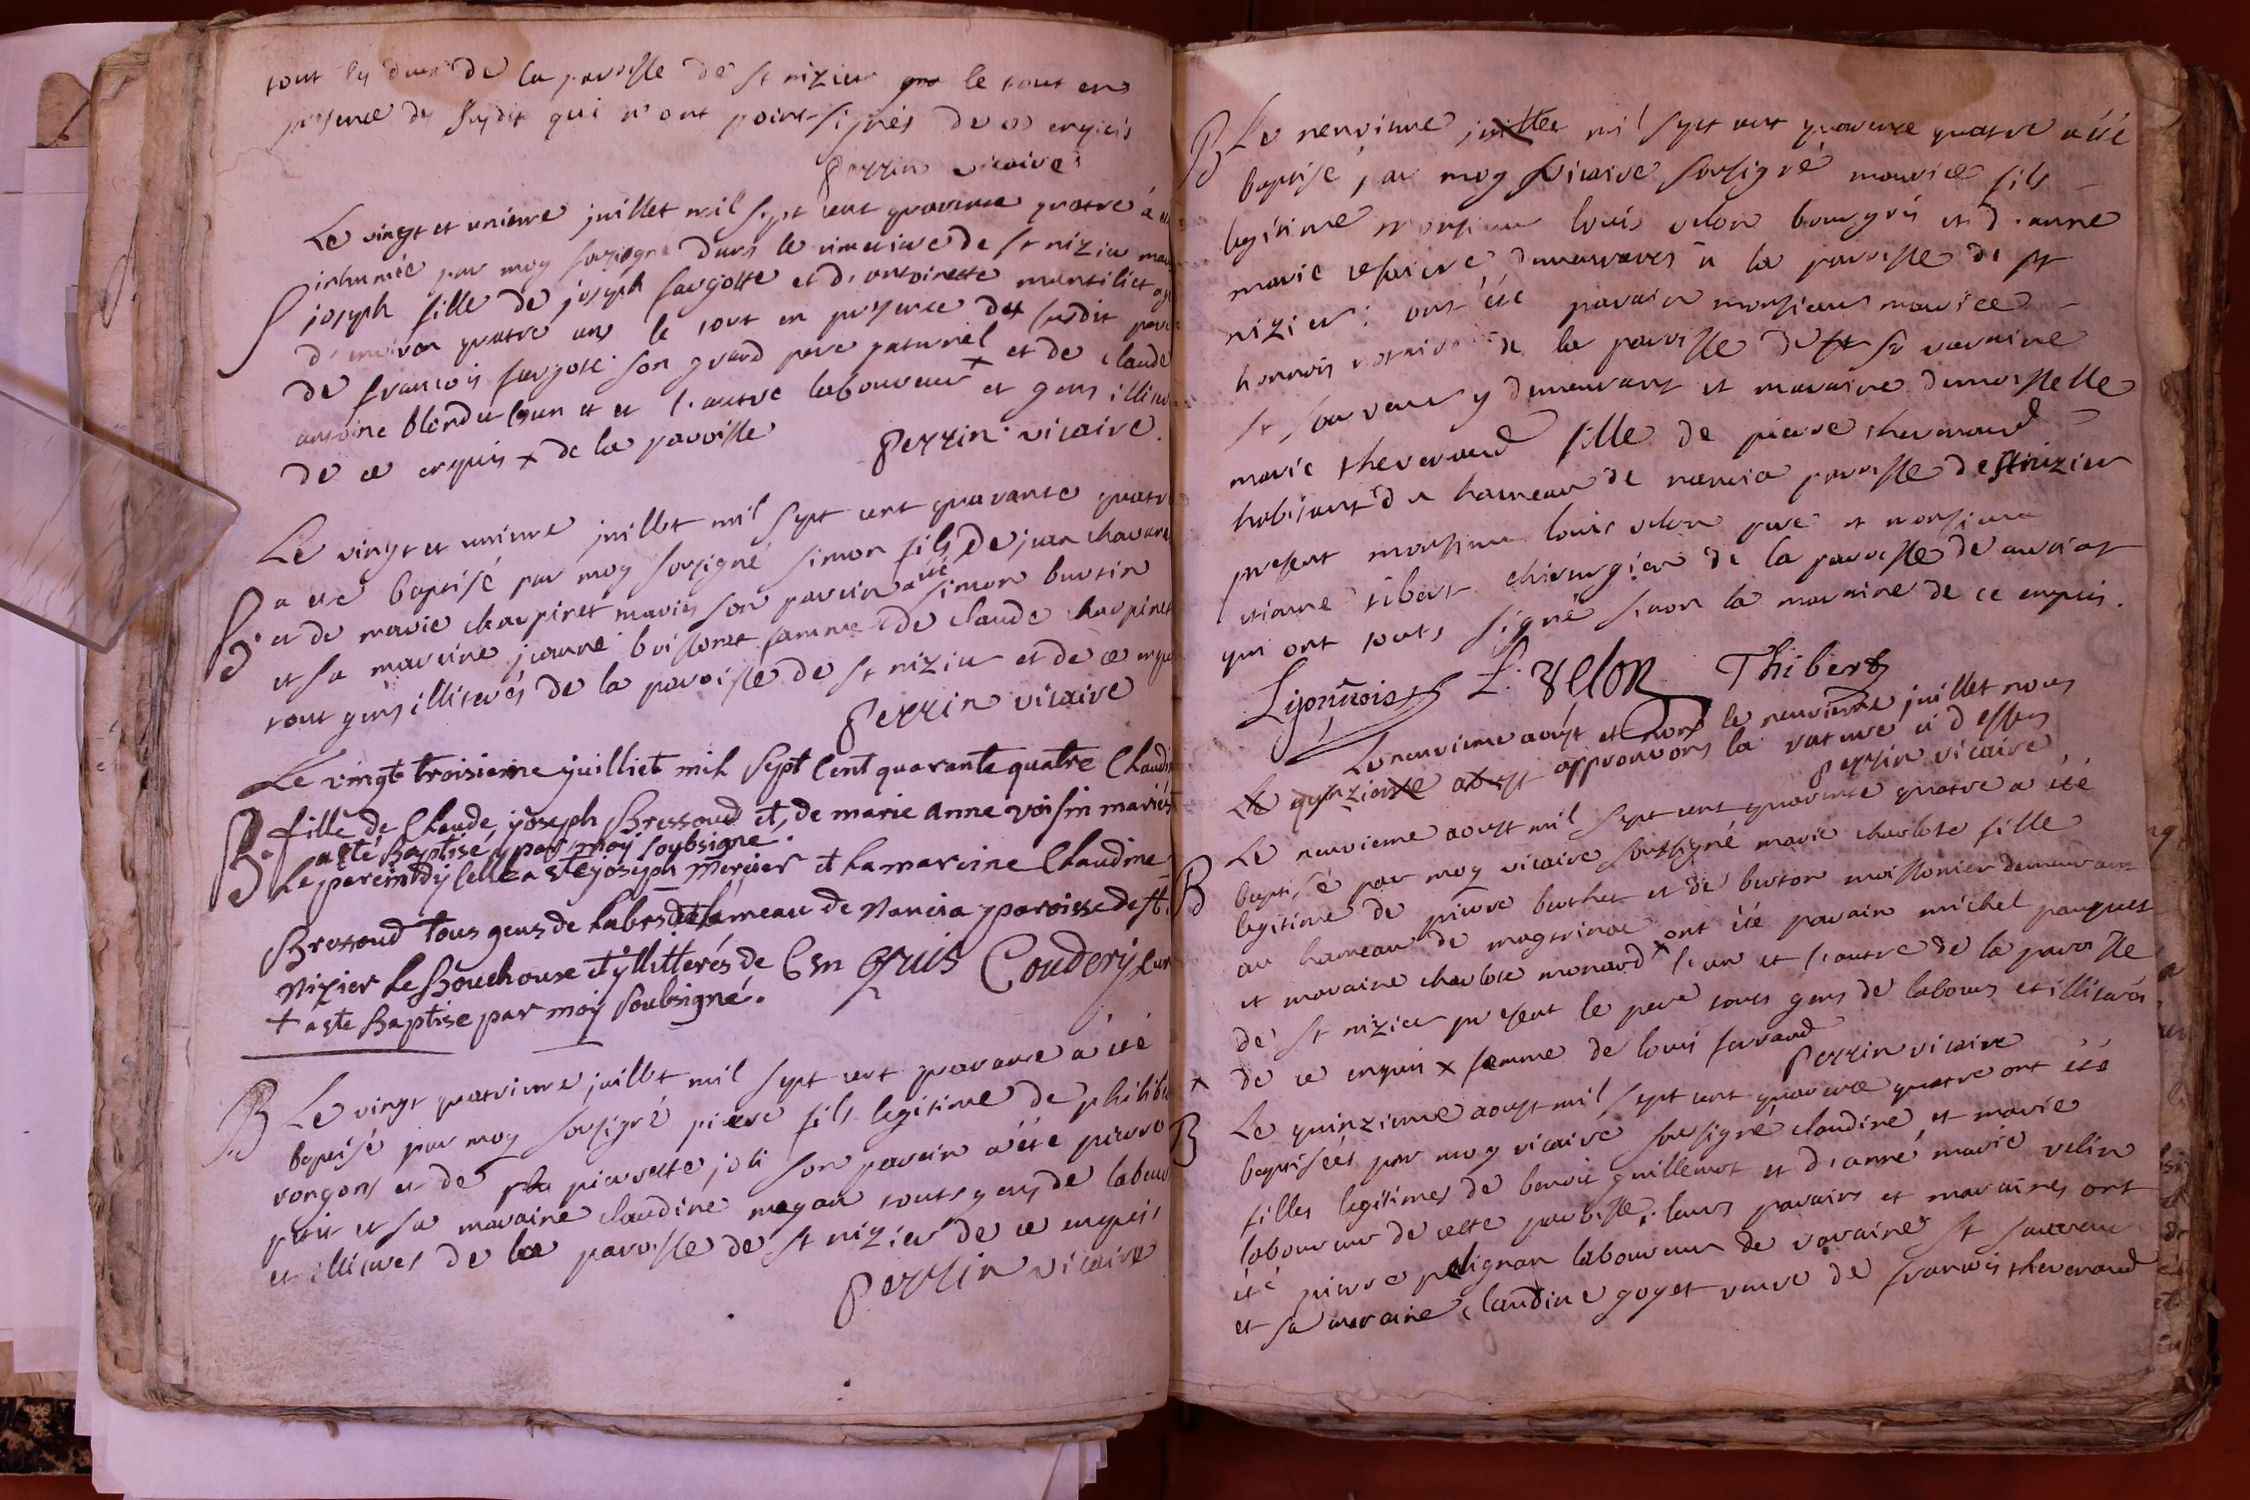 tout les deux de la paroisse de st nizier le tout en
presence des susdit qui n'ont point signés de ce enquis
perrin vicaire
Le vingt et unieme juillet mil sept cent quarante quatre à été
S inhumée par moy sousigné dans le cimetiere de st nizier marie
joseph fille de joseph fargotte et d'antoinette agée
d'environ quatre ans le tout en presence des susdit pere
de francois fargote son grand pere paternel et de claude
antoine blondet l'un et et l'autre laboureur x et gens illiteré
de ce enquis x de la paroisse perrin vicaire.
Le vingt et unieme juillet mil sept cent quarante quatre
B. a été baptisé par moy sousigné simon fils de jean chavanel
et de marie charpinet mariés son parrin a été simon burtin
et sa marrine jeanne buissonet famme de claude charpinet
tout gens illiterés de la paroisse de st nizier et de ce enquis
perrin vicaire
Le vingt troisieme juilliet mil sept Cent quarante quatre Claudine
B. fille de Claude joseph Bressoud et de marie anne voisin mariés
a esté Baptise par moy soubsigne.
Le parein d'ycelle a este joseph Mercier et la mareine Claudine
Bressoud tous gens de labeur du hameau de Nancia paroisse de st.
Nizier Le Bouchoux et yllitterés de Ce Enquis Coudery Cur
+ a ste Baptise par moy soubsigné.
B Le vingt quatrieme juillet mil sept cent quarante à été
baptisé par moy sousigné pierre fils legitime de philibert
rongons et de pierrette joli son parrain a été pierre
petit et sa maraine claudine mogan touts gens de labeur
et illiterés de la paroisse de st nizier de ce enquis
perrin vicaire
B Le neuvieme juillet mil sept cent quarante quatre a été
baptisé par moy vicaire sousigné maurice fils
legitime monsieur louis velon bourgois et d. anne
marie demeurants à la paroisse de st
nizier: ont été parain monsieur maurice
notaire de la paroisse de st st varaine
st sauveur y demeurant et maraine demoiselle
marie thevenaud fille de pierre thevenaud
habitant du hameau de nancia paroisse de st nizier
present monsieur louis velon pere et monsieur
etienne tibert chirurgien de la paroisse de
qui ont touts signé sinon la maraine de ce enquis.
Lyonnois L. Velon Thibert
Le neuvieme aoust et non le neuvieme juillet nous
Le quinzieme aoust approuvons la rature cí dessus
perrin vicaire
B Le neuvieme aoust mil sept cent quarante quatre a été
baptisé par moy vicaire sousigné marie charlote fille
legitime de pierre buchet et de burton moissonier demeurant
au hameau de magtrinac ont été parain michel panquet
et maraine charlote monard x l'un et l'autre de la paroisse
de st nizier present le pere touts gens de labours et illiterés
x de ce enquis x femme de louis ferrand
perrin vicaire
B Le quinzieme aoust mil sept cent quarante quatre ont été
baptisées par moy vicaire sousigné claudine et marie
filles legitimes de benoit guillemot et d'anne marie velin
laboureur de cette paroisse. leurs parains et maraines ont
été pierre pelignan laboureur de varaine st sauveur
et sa maraine claudine goyet veuve de francois thevenaud